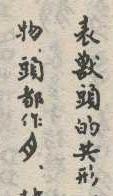 表獸頭的共形
物、頭都作⺼、